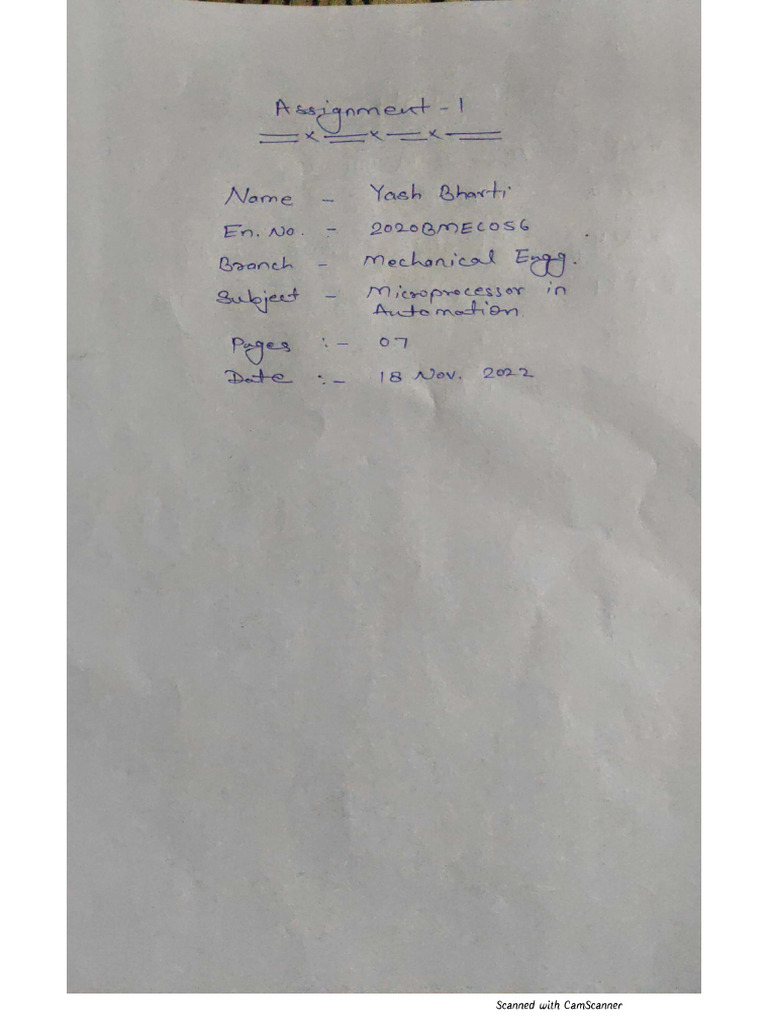 Assignment - 1
Name - Yash Bharti
En. No. - 2020BMEC056
Branch - Mechanical Engg.
Subject - Microprocessor in
Automation
Pages :- 07
Date :- 18 Nov. 2022
Scanned with CamScanner